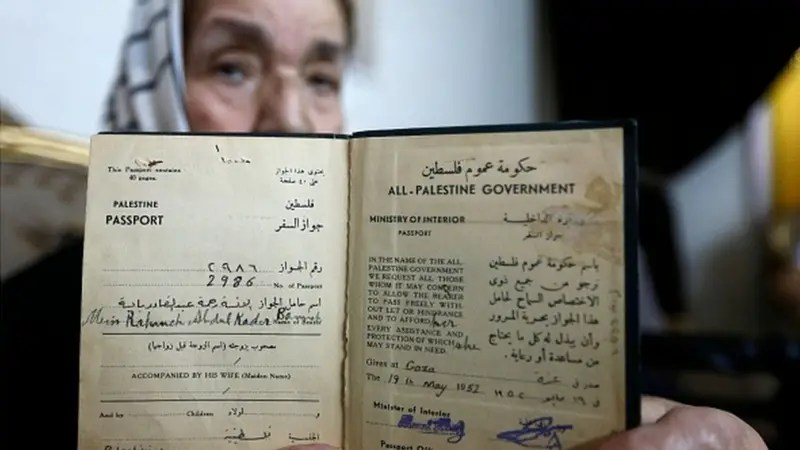 This Passport contains
40 pages.
يحتوى هذا الجواز
على ٤٠ صفحة
PALESTINE
PASSPORT
فلسطين
جواز السفر
رقم الجواز ٢٩٨٦
2986 No. of Passport
اسم حامل الجواز
Miss Abdul Kader
مصحوب بزوجته (اسم الزوجة قبل زواجها)
ACCOMPANIED BY HIS WIFE (Maiden Name)
And by Children اولاد و
الجنسية فلسطينية
حكومة عموم فلسطين
ALL-PALESTINE GOVERNMENT
MINISTRY OF INTERIOR
PASSPORT
الداخلية
جواز السفر
IN THE NAME OF THE ALL-
PALESTINE GOVERNMENT
WE REQUEST ALL THOSE
WHOM IT MAY CONCERN
TO ALLOW THE BEARER
TO PASS FREELY WITH-
OUT LET OR HINDRANCE
AND TO AFFORD her
EVERY ASSISTANCE AND
PROTECTION OF WHICH she
MAY STAND IN NEED.
باسم حكومة عموم فلسطين
نرجو من جميع ذوى
الاختصاص السماح لحامل
هذا الجواز بحرية المرور
وأن يبذل له كل ما يحتاج
من مساعدة أو رعاية .
Given at Gaza صدر فى غزة
The 19th May 1952
Minister of Interior
Passport